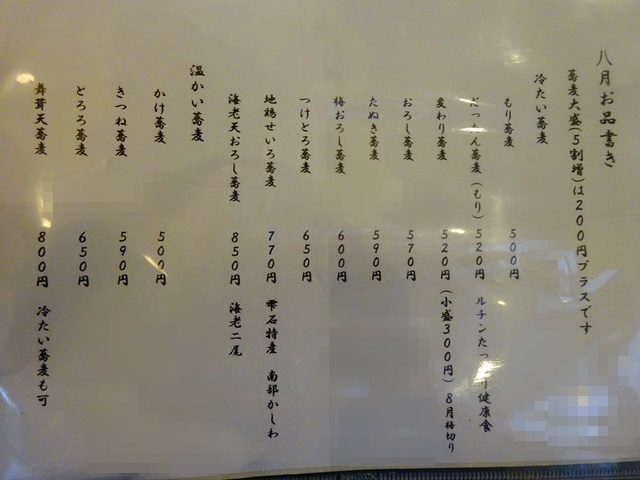 八月お品書き
蕎麦大盛(5割増)は200円プラスです
冷たい蕎麦
もり蕎麦 500円
だったん蕎麦(もり) 520円 ルチンたっぷり健康食
変わり蕎麦 520円(小盛300円)8月梅切り
おろし蕎麦 570円
たぬき蕎麦 590円
梅おろし蕎麦 600円
つけとろ蕎麦 650円
地鶏せいろ蕎麦 770円 雫石特産 南部かしわ
海老天おろし蕎麦 850円 海老二尾
温かい蕎麦
かけ蕎麦 500円
きつね蕎麦 590円
とろろ蕎麦 650円
舞茸天蕎麦 800円 冷たい蕎麦も可